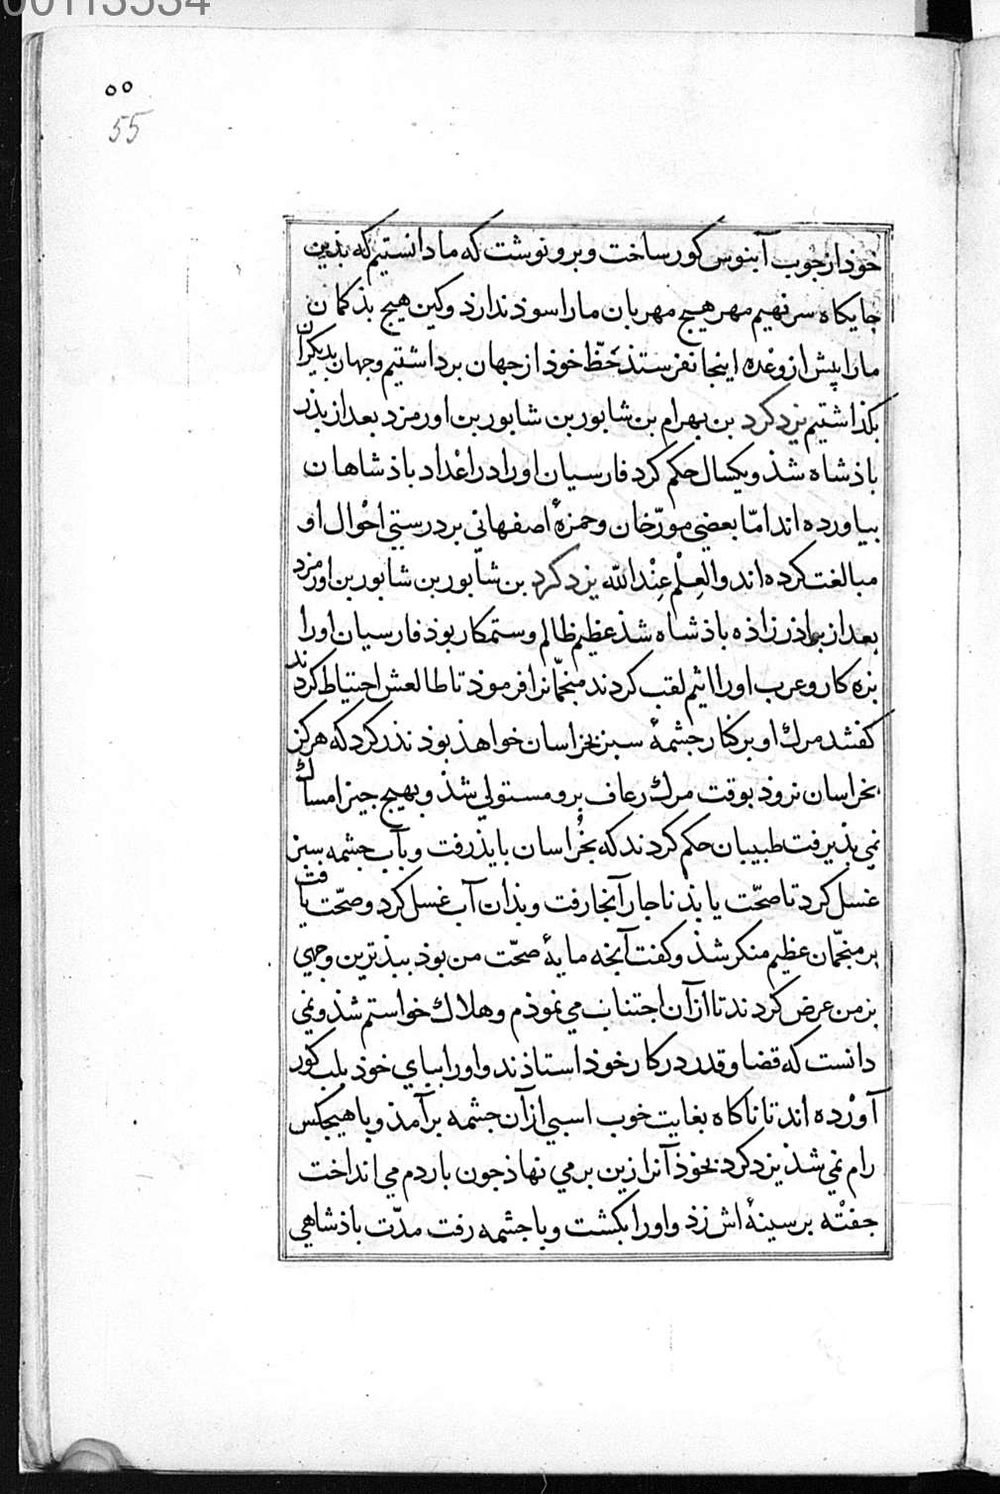 00113534
٥٥
55
خوذ از جوب آبنوس كور ساخت و برو نوشت كه ما دانستيم كه بذين
جايكاه سر نهيم مهر هيج مهربان ما را سوذ ندارذ وكين هيج بذكمان
ما را بيش از وعْده اينجا نفرستذ حَظّ خوذ از جهان برداشتيم و جهان بديكران
بكذاشتيم يزدكرد بن بهرام بن شابور بن شابور بن اورمزد بعد از بذر
باذشاه شذ و يكسال حكم كرد فارسيان او را در اعْداد باذشاهان
بياورده اند امّا بعضي مورّخان و حمزهٔ اصفهاني بر درستي احْوال او
مبالغت كرده اند والعِلْم عِنْد الله يزدكرد بن شابور بن شابور بن اورمزد
بعد از براذرزاذه باذشاه شذ عظيم ظالم و ستمكار بوذ فارسيان او را
بزه كار و عرب او را اثيم لقب كردند منجّمانرا فرموذ تا طالعش احتياط كردند
كفتند مرك او بر كنار جشمهٔ سبز بخراسان خواهذ بوذ نذر كرد كه هركز
بخراسان نروذ بوقت مرك رعاف برو مستولي شذ و بهيج جيز امساك
نمي بذيرفت طبيبان حكم كردند كه بخُراسان بايذ رفت و بآب جشمه سبز
غسل كرد تا صحّت يابذ ناجار آنجا رفت و بذان آب غسل كرد و صحّت يافت
بر منجّمان عظيم منكر شذ و كفت آنجه مايهٔ صحّت من بوذ ببذترين وجهي
بر من عرض كردند تا از آن اجتناب مي نموذم و هلاك خواستم شذ و نمي
دانست كه قضا و قدر در كار خوذ استاذند و او را بباي خوذ بلب كور
آورده اند تا ناكاه بغايت خوب اسبي از آن جشمه برآمذ و با هيجكس
رام نمي شذ يزدكرد بخوذ آنرا زين بر مي نهاذ جون باردم مي انداخت
جفتْه بر سينهٔ اش زذ و او را بكشت و با جشمه رفت مدّت باذشاهي